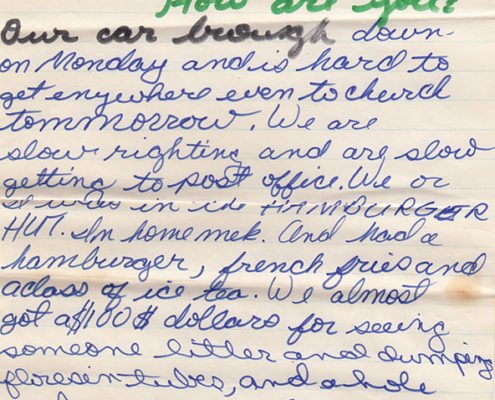 How are you?
Our car brough down
on Monday and is hard to
get enywhere even to church
tommorrow. We are
slow righting and are slow
getting to post office. We or
in the HAMBURGER
HUT. In homemek. And had a
hamburger, french fries and
a class of ice tea. We almost
got a $100$ dollars for seeing
someone litter and dumping
floresin tubes, and a hole